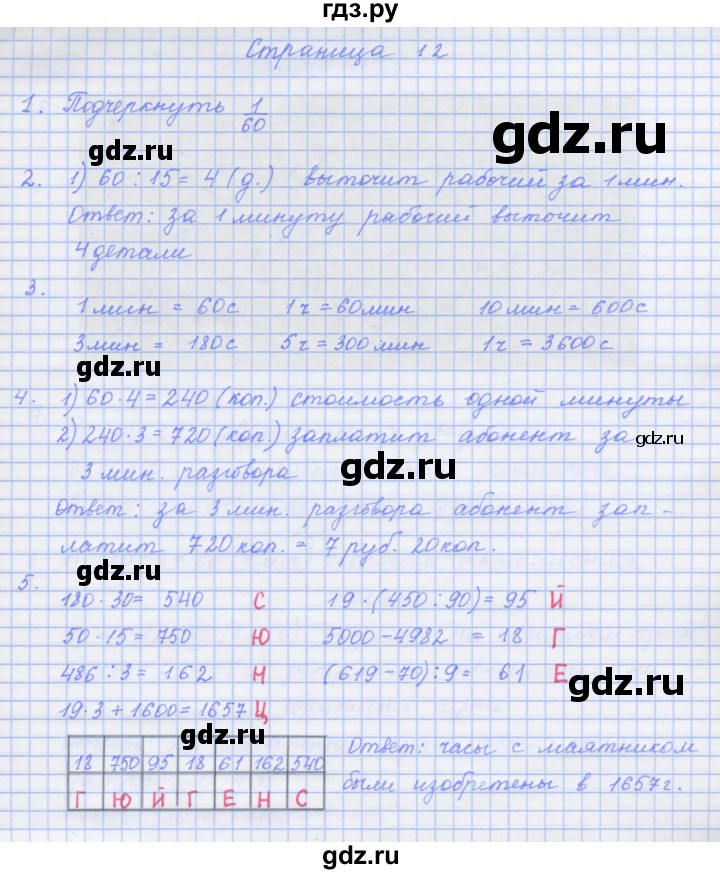 гдз.ру
Страница 12
1. Подчеркнуть 1/60
gdz.ru
gdz.ru
2. 1) 60 : 15 = 4 (д.) выточит рабочий за 1 мин.
Ответ: за 1 минуту рабочий выточит
4 детали
gdz.ru
3.
1 мин = 60 с 1 ч = 60 мин 10 мин = 600 с
3 мин = 180 с 5 ч = 300 мин 1 ч = 3600 с
gdz.ru
4. 1) 60 · 4 = 240 (коп.) стоимость одной минуты
2) 240 · 3 = 720 (коп.) заплатит абонент за
gdz.ru
3 мин. разговора
gdz.ru
Ответ: за 3 мин. разговора абонент зап-
латит 720 коп. = 7 руб. 20 коп.
gdz.ru
5.
180 · 30 = 540 С 19 · (450 : 90) = 95 Й
50 · 15 = 750 Ю 5000 – 4982 = 18 Г
486 : 3 = 162 Н (619 – 70) : 9 = 61 Е
gdz.ru
19 · 3 + 1600 = 1657 Ц
gdz.ru
18 750 95 18 61 162 540
Г Ю Й Г Е Н С
Ответ: часы с маятником
были изобретены в 1657 г.
gdz.ru